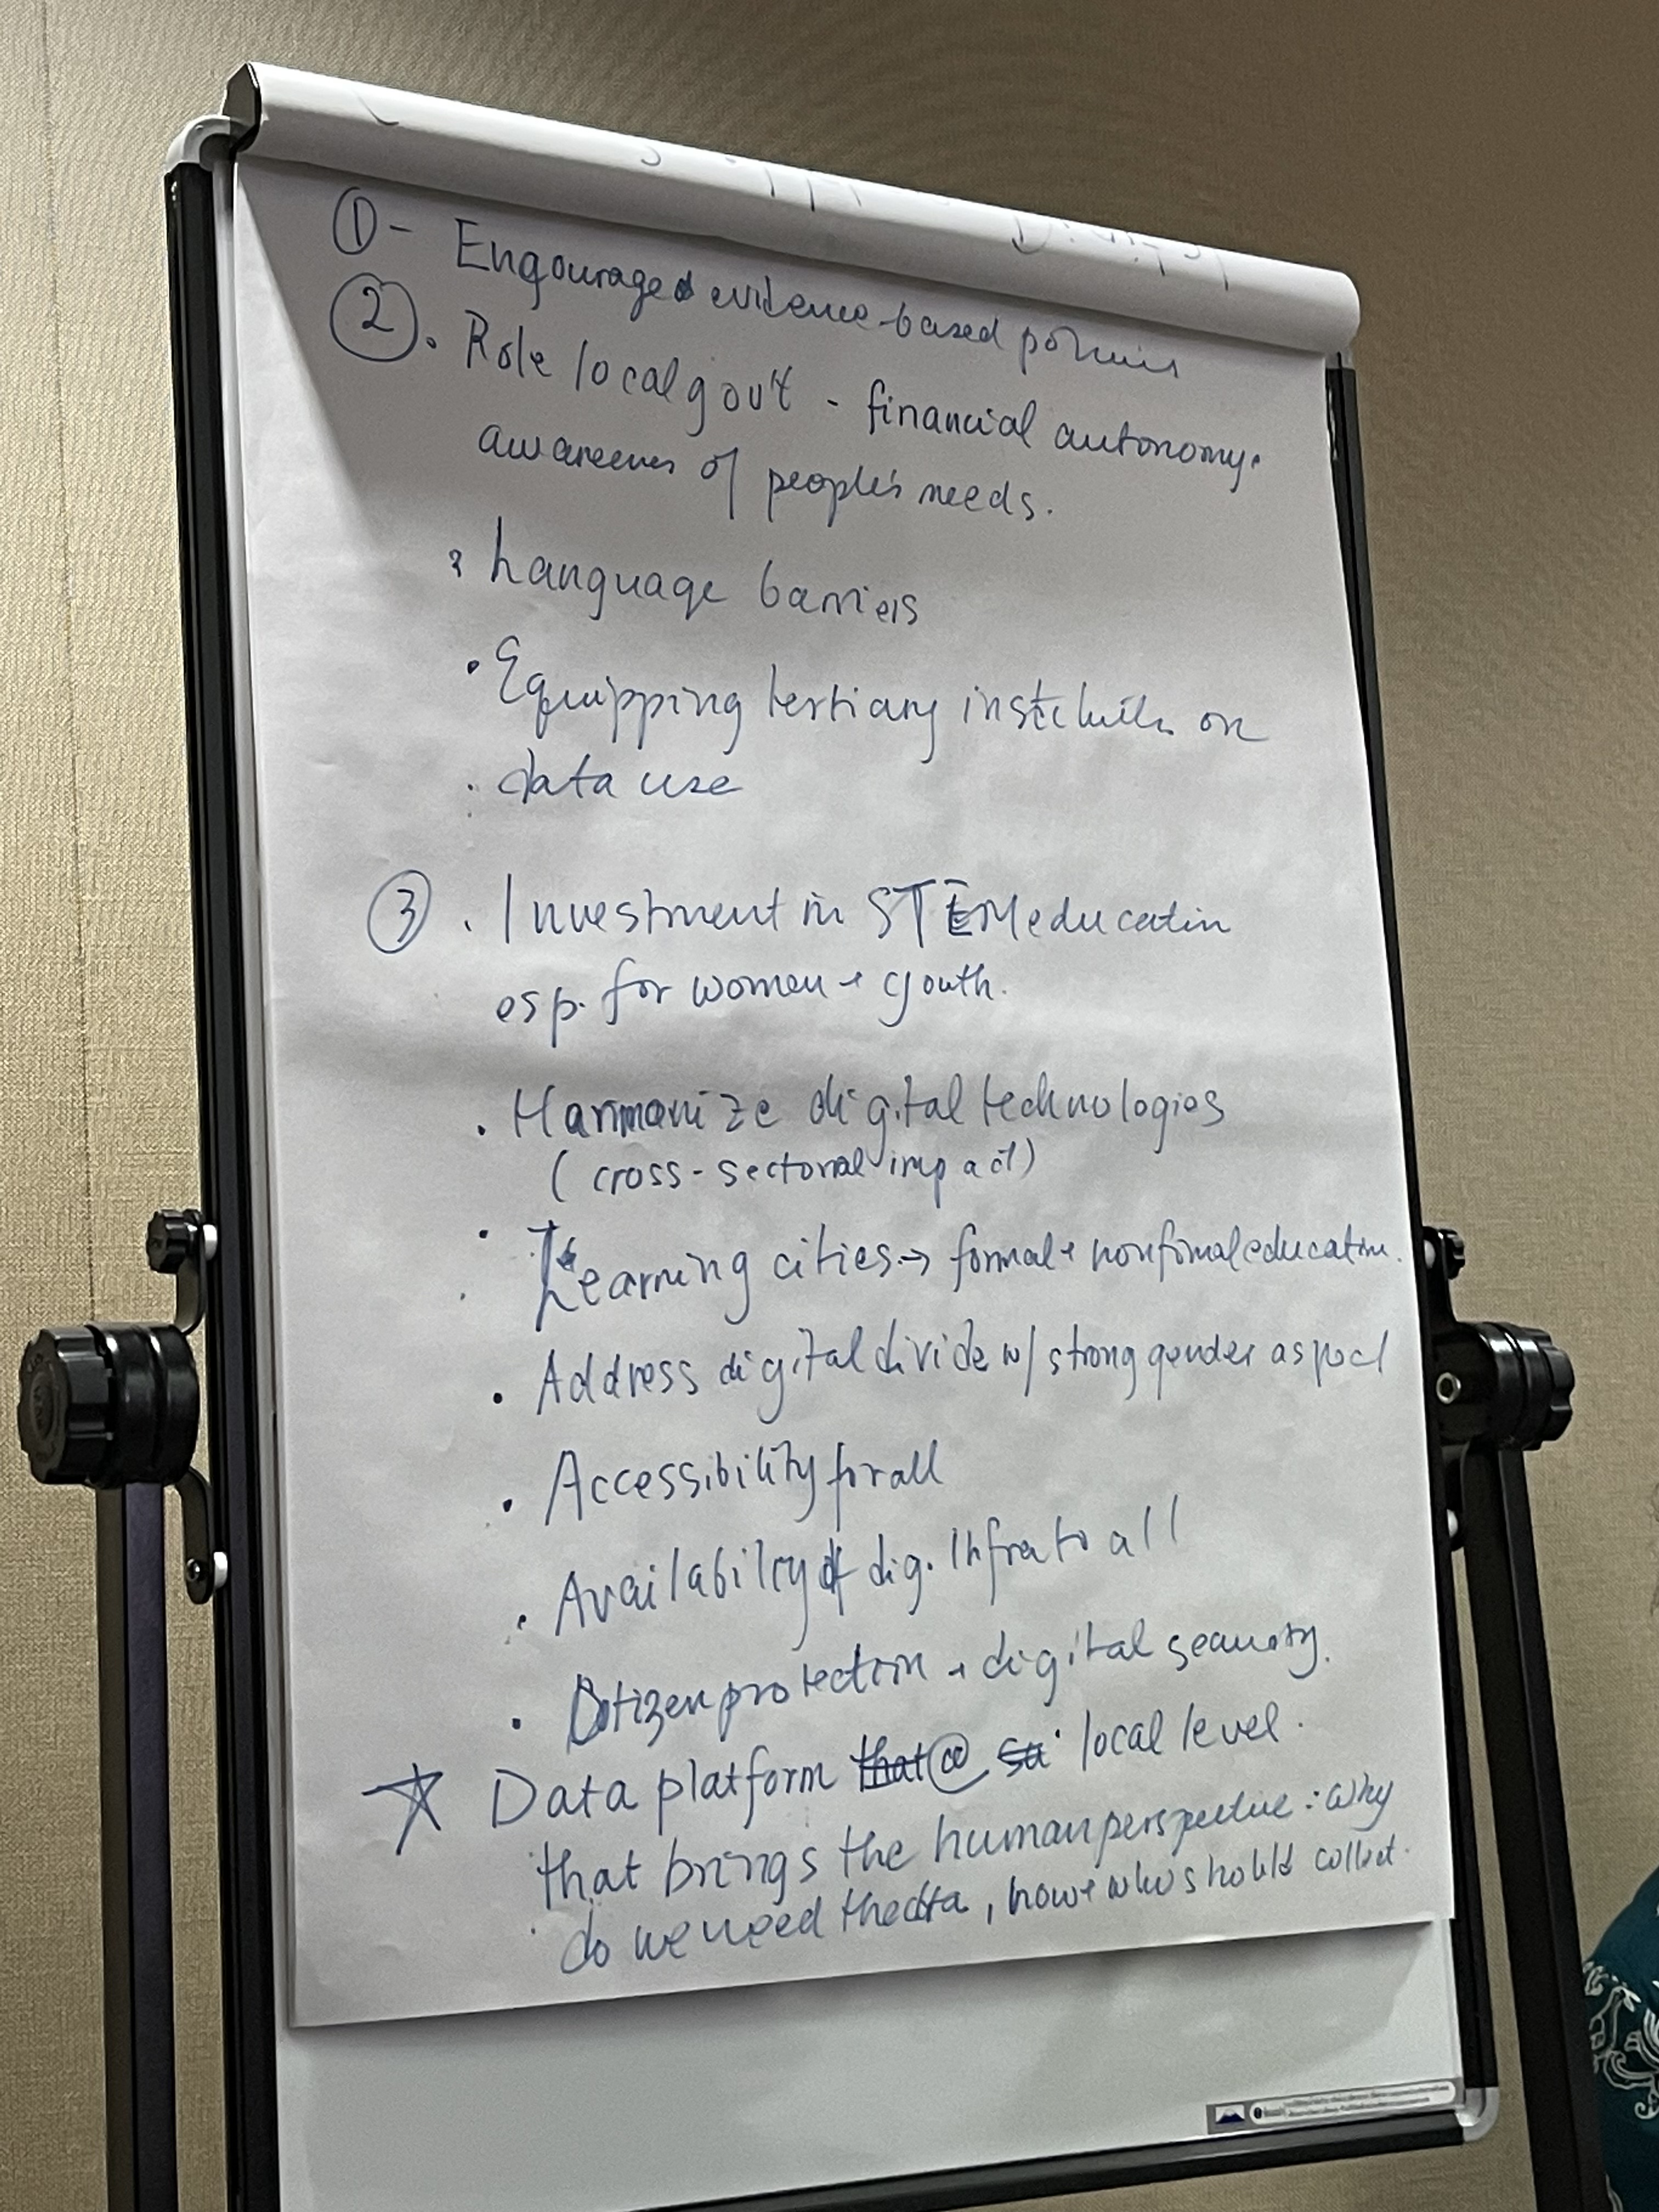 ① - Engourage evidence-based policies
② . Role local gov't - financial autonomy.
awareness of people's needs.
Language barriers
. Equipping tertiary institutes on
. data use
③ . Investment in STEM education
esp. for women + youth.
. Harmonize digital technologies
(cross-sectoral impact)
. Learning cities → formal + nonformal education.
. Address digital divide w/ strong gender aspect
. Accessibility for all
. Availability of dig. infra to all
. Citizen protection + digital security.
☆ Data platform that @ sa local level.
that brings the human perspective : why
do we need the data, how + who should collect.